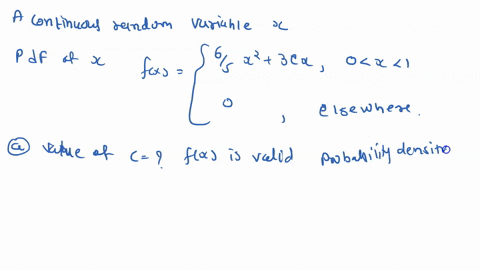 A continuous random variable x
Pdf of x f(x) = { 6/5 x² + 3Cx , 0 < x < 1
0 , elsewhere.
(a) value of c = ? f(x) is valid probability densite